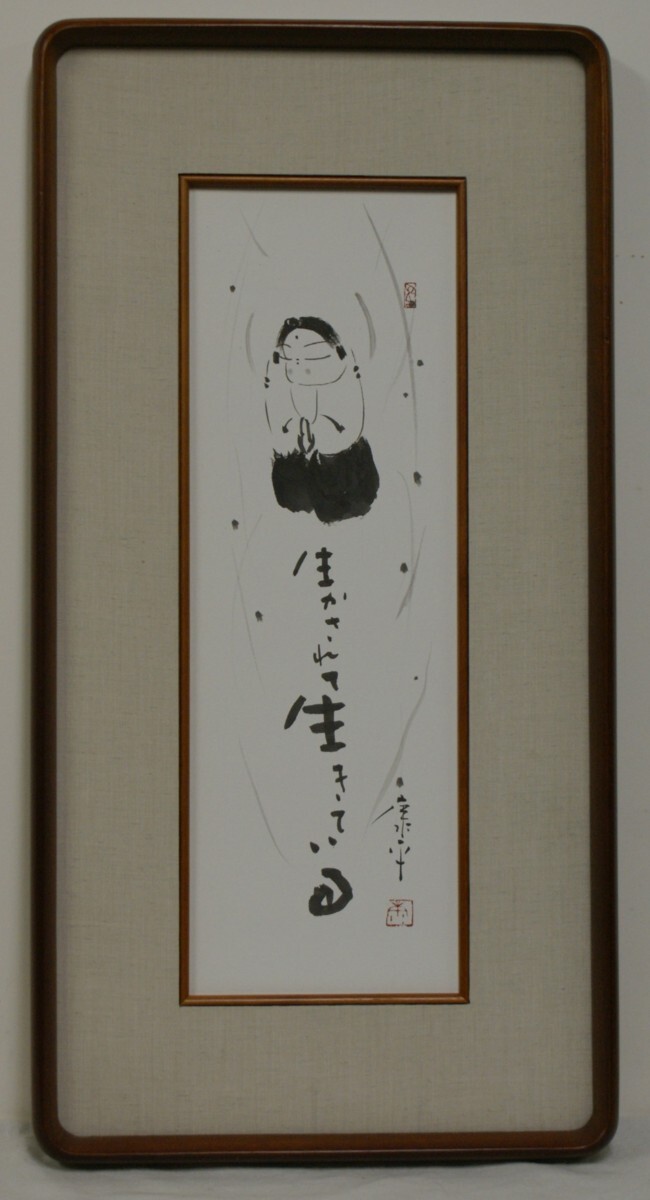 生かされて
生きている